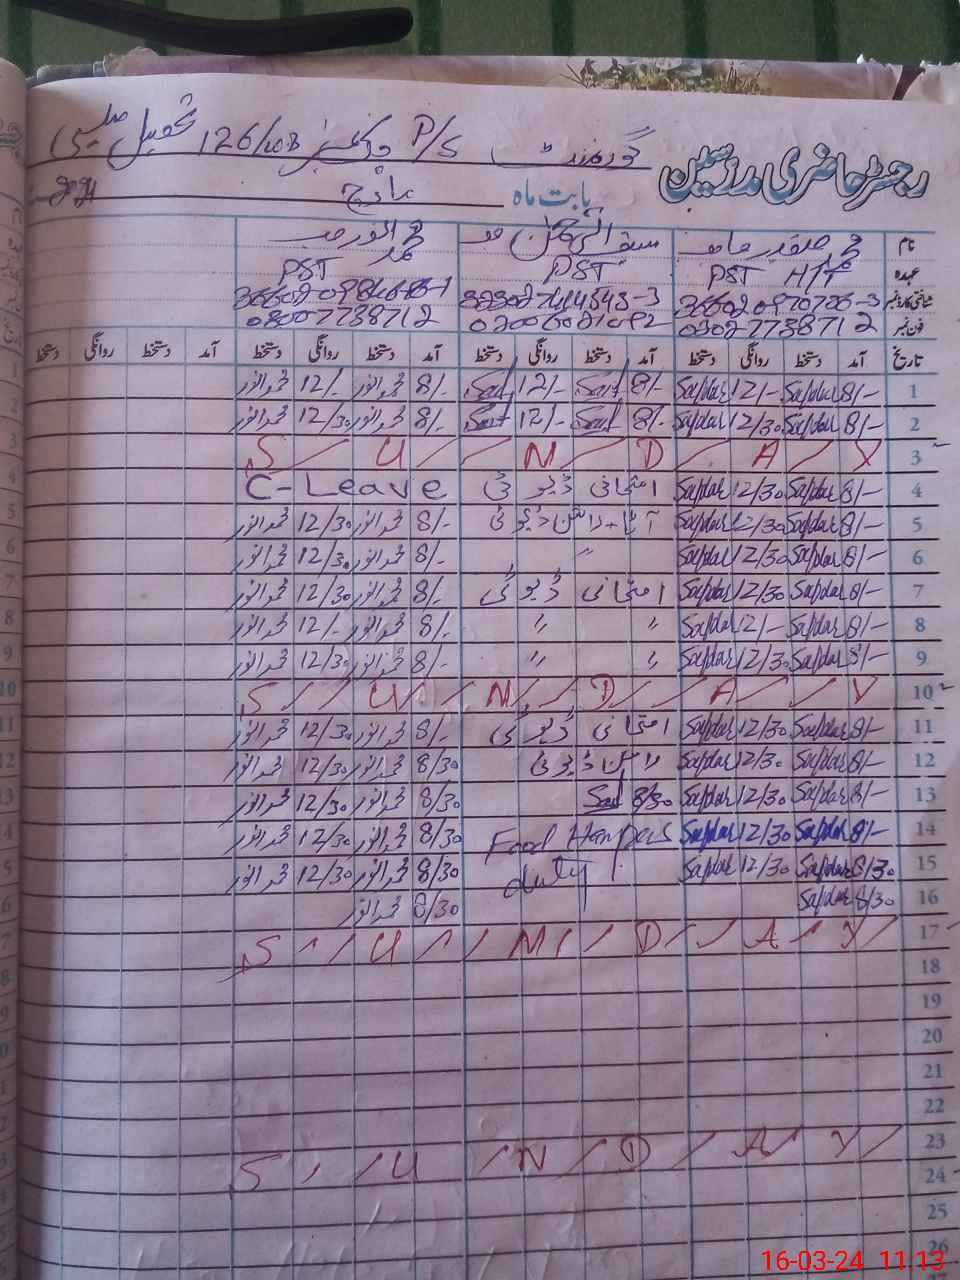 رجسٹر حاضری مدرسین گورنمنٹ P/S 126/10B تحصیل
بابت ماہ مارچ
نام
عہدہ PST HTT PST PST
شناختی کارڈ نمبر
فون نمبر 03027738712
تاریخ آمد دستخط روانگی دستخط آمد دستخط روانگی دستخط آمد دستخط روانگی دستخط آمد دستخط روانگی دستخط
1 8/- Safdar 12/- Safdar 8/- Saif 12/- Saif 8/- محمد انور 12/- محمد انور
2 8/- Safdar 12/30 Safdar 8/- Saif 12/- Saif 8/- محمد انور 12/30 محمد انور
3 S U N D A Y
4 8/- Safdar 12/30 Safdar امتحانی ڈیوٹی C-Leave
5 8/- Safdar 12/30 Safdar ڈیوٹی 8/- محمد انور 12/30 محمد انور
6 8/- Safdar 12/30 Safdar 〃 8/- محمد انور 12/30 محمد انور
7 8/- Safdar 12/30 Safdar امتحانی ڈیوٹی 8/- محمد انور 12/30 محمد انور
8 8/- Safdar 12/- Safdar 〃 〃 8/- محمد انور 12/- محمد انور
9 8/- Safdar 12/30 Safdar 〃 〃 8/- محمد انور 12/30 محمد انور
10 S U N D A Y
11 8/- Safdar 12/30 Safdar امتحانی ڈیوٹی 8/- محمد انور 12/30 محمد انور
12 8/- Safdar 12/30 Safdar راشن ڈیوٹی 8/30 محمد انور 12/30 محمد انور
13 8/- Safdar 12/30 Safdar 8/30 Saif 8/30 محمد انور 12/30 محمد انور
14 8/- Safdar 12/30 Safdar Food Hampers 8/30 محمد انور 12/30 محمد انور
15 8/30 Safdar 12/30 Safdar duty 8/30 محمد انور 12/30 محمد انور
16 8/30 Safdar 8/30 محمد انور
17 S U N D A Y
18
19
20
21
22
23
24 S U N D A Y
25
26
16-03-24 11:13